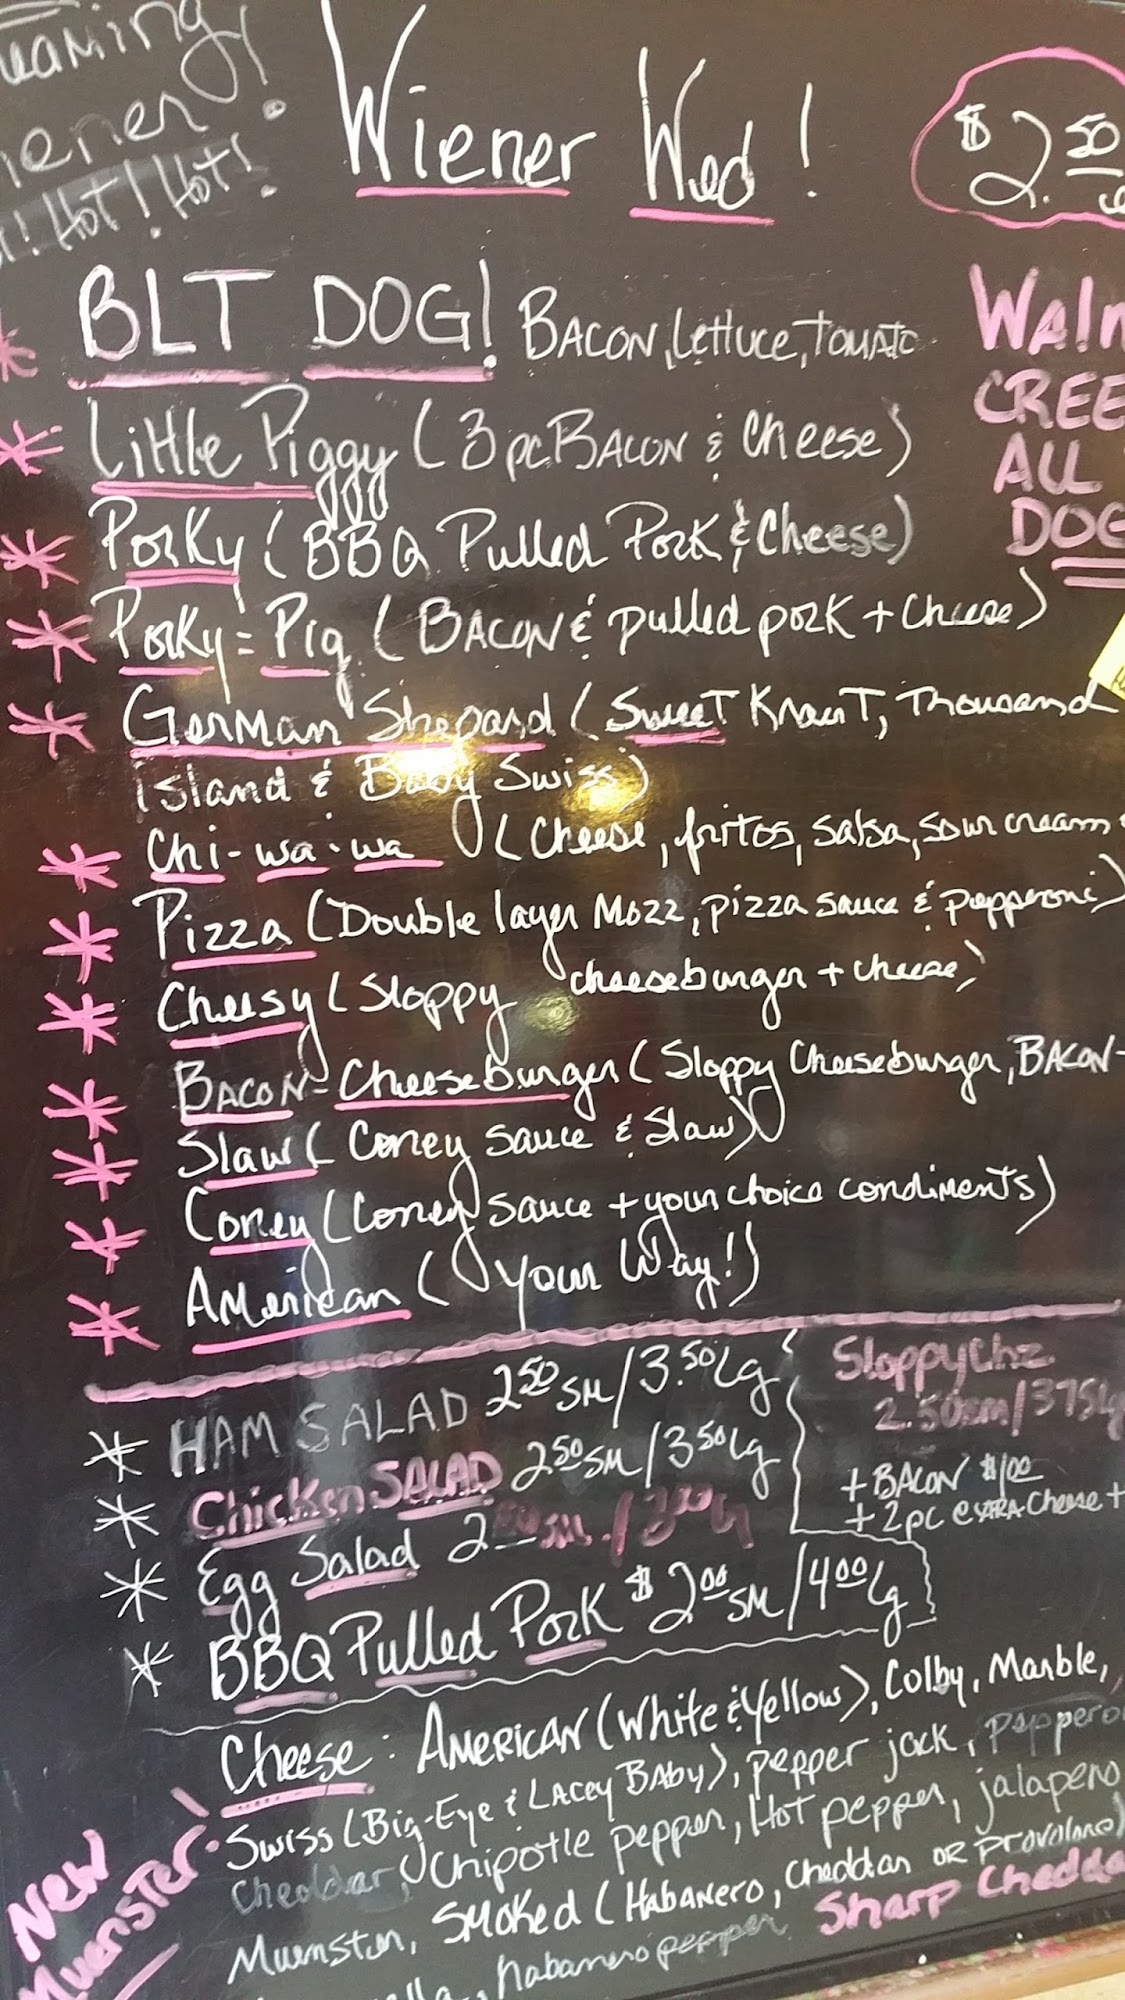 Wiener Wed!
$2.50
Hot! Hot!
BLT DOG! BACON, Lettuce, TOMATO
CREE
ALL
DOG
Little Piggy (3pc BACON & Cheese)
Porky (BBQ Pulled Pork & Cheese)
Porky=Pig (BACON & pulled pork + cheese)
German Shepard (Sweet Kraut, Thousand
Island & Baby Swiss)
Chi-wa-wa (Cheese, fritos, salsa, sour cream
Pizza (Double layer Mozz, pizza sauce & pepperoni)
Cheesy (Sloppy cheeseburger + cheese)
Bacon-Cheeseburger (Sloppy Cheeseburger, BACON-
Slaw (Coney sauce & Slaw)
Coney (Coney sauce + your choice condiments)
American (your Way!)
HAM SALAD 2.50 SM/3.50 Lg
Chicken SALAD 2.50 SM/3.50 Lg
Egg Salad 2
BBQ Pulled Pork $2.00 SM/4.00 Lg
Sloppy Chz
2.50 sm/3.75 Lg
+ BACON $1.00
+ 2pc extra cheese +
Cheese: American (White & Yellow), Colby, Marble,
Swiss (Big-Eye & Lacey BABY), pepper jack,
Cheddar, Chipotle pepper, Hot pepper, jalapeno
Muenster, Smoked (Habanero, Cheddar or Provolone)
habanero pepper Sharp Chedda
New
Muenster